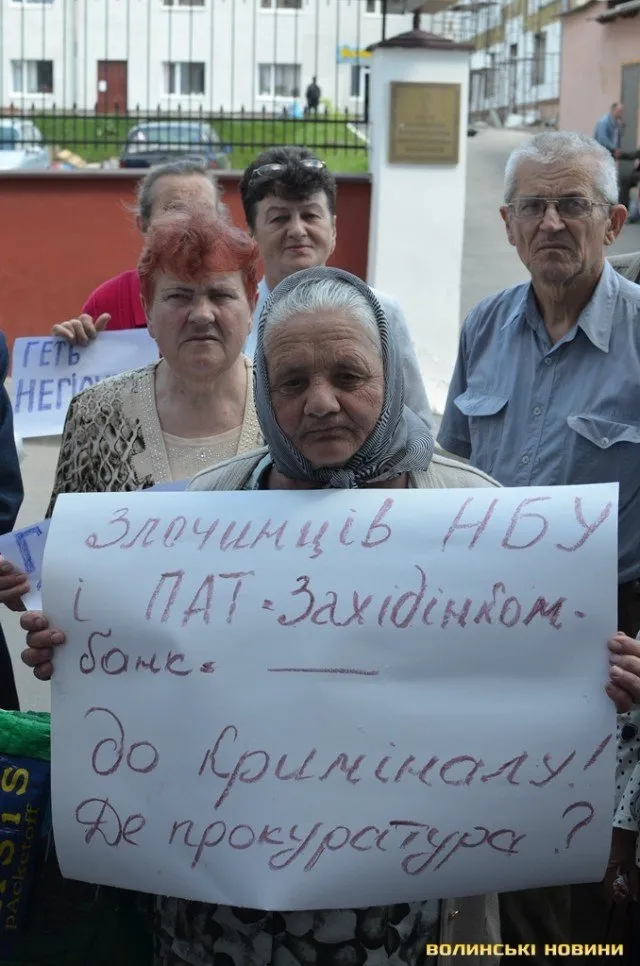 ГЕТЬ
НЕГІД
Злочинців НБУ
і ПАТ "Західінком-
банк" —
до криміналу!
Де прокуратура?
SIS
PACKETOFF
ВОЛИНСЬКІ НОВИНИ